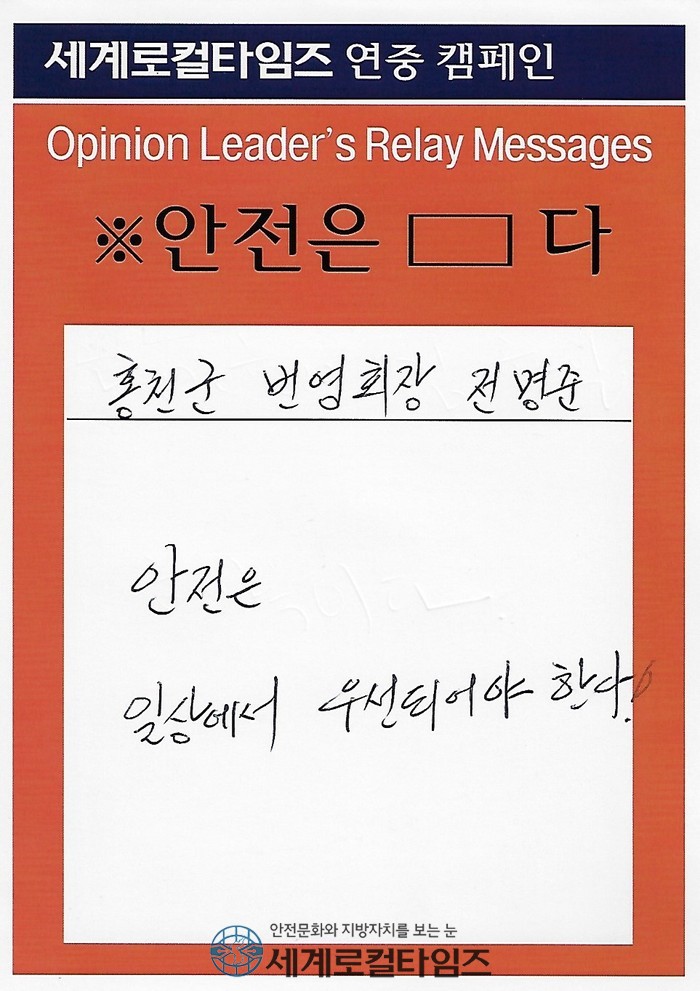 세계로컬타임즈 연중 캠페인
Opinion Leader's Relay Messages
※안전은 □ 다
홍천군 번영회장 전명준
안전은
일상에서 우선되어야 한다!
안전문화와 지방자치를 보는 눈
세계로컬타임즈